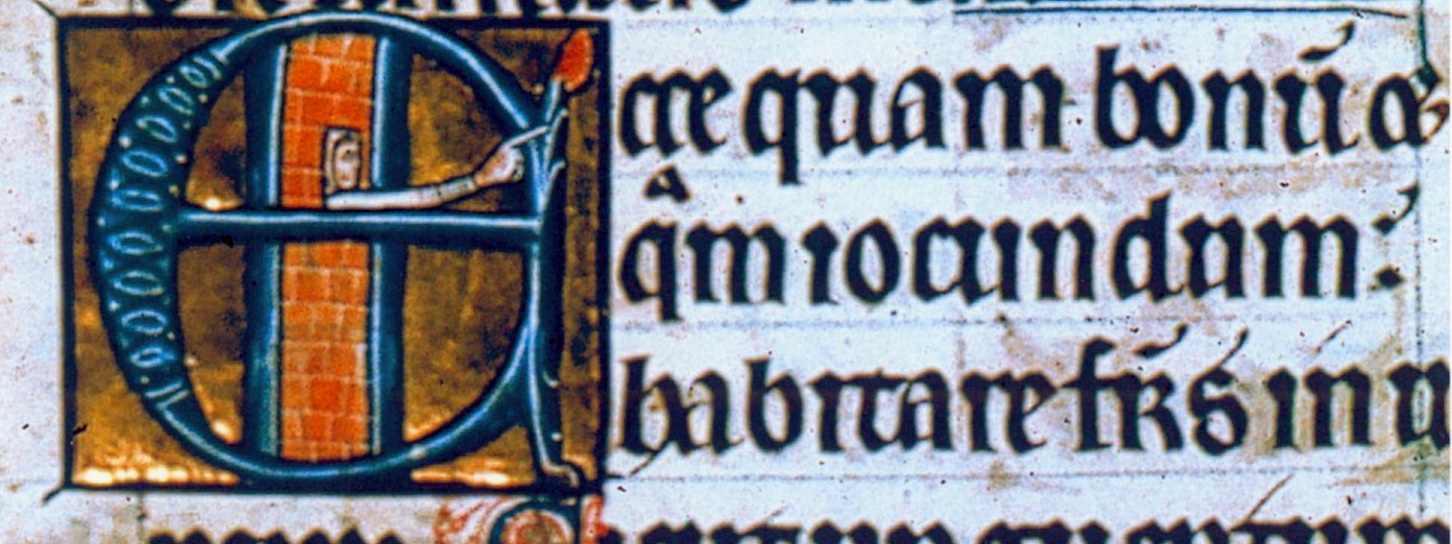 Ecce quam bonū &
q̄m iocundum:
habitare fr̄s in u